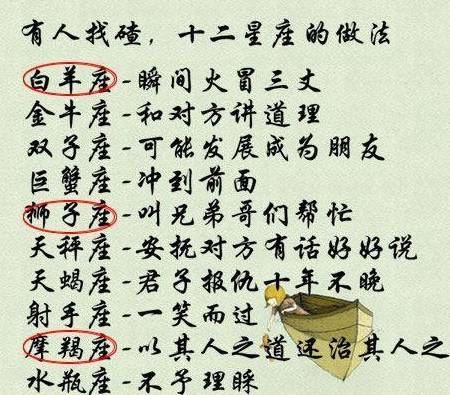 有人找碴，十二星座的做法
白羊座-瞬间火冒三丈
金牛座-和对方讲道理
双子座-可能发展成为朋友
巨蟹座-冲到前面
狮子座-叫兄弟哥们帮忙
天秤座-安抚对方有话好好说
天蝎座-君子报仇十年不晚
射手座-一笑而过
摩羯座-以其人之道还治其人之
水瓶座-不予理睬